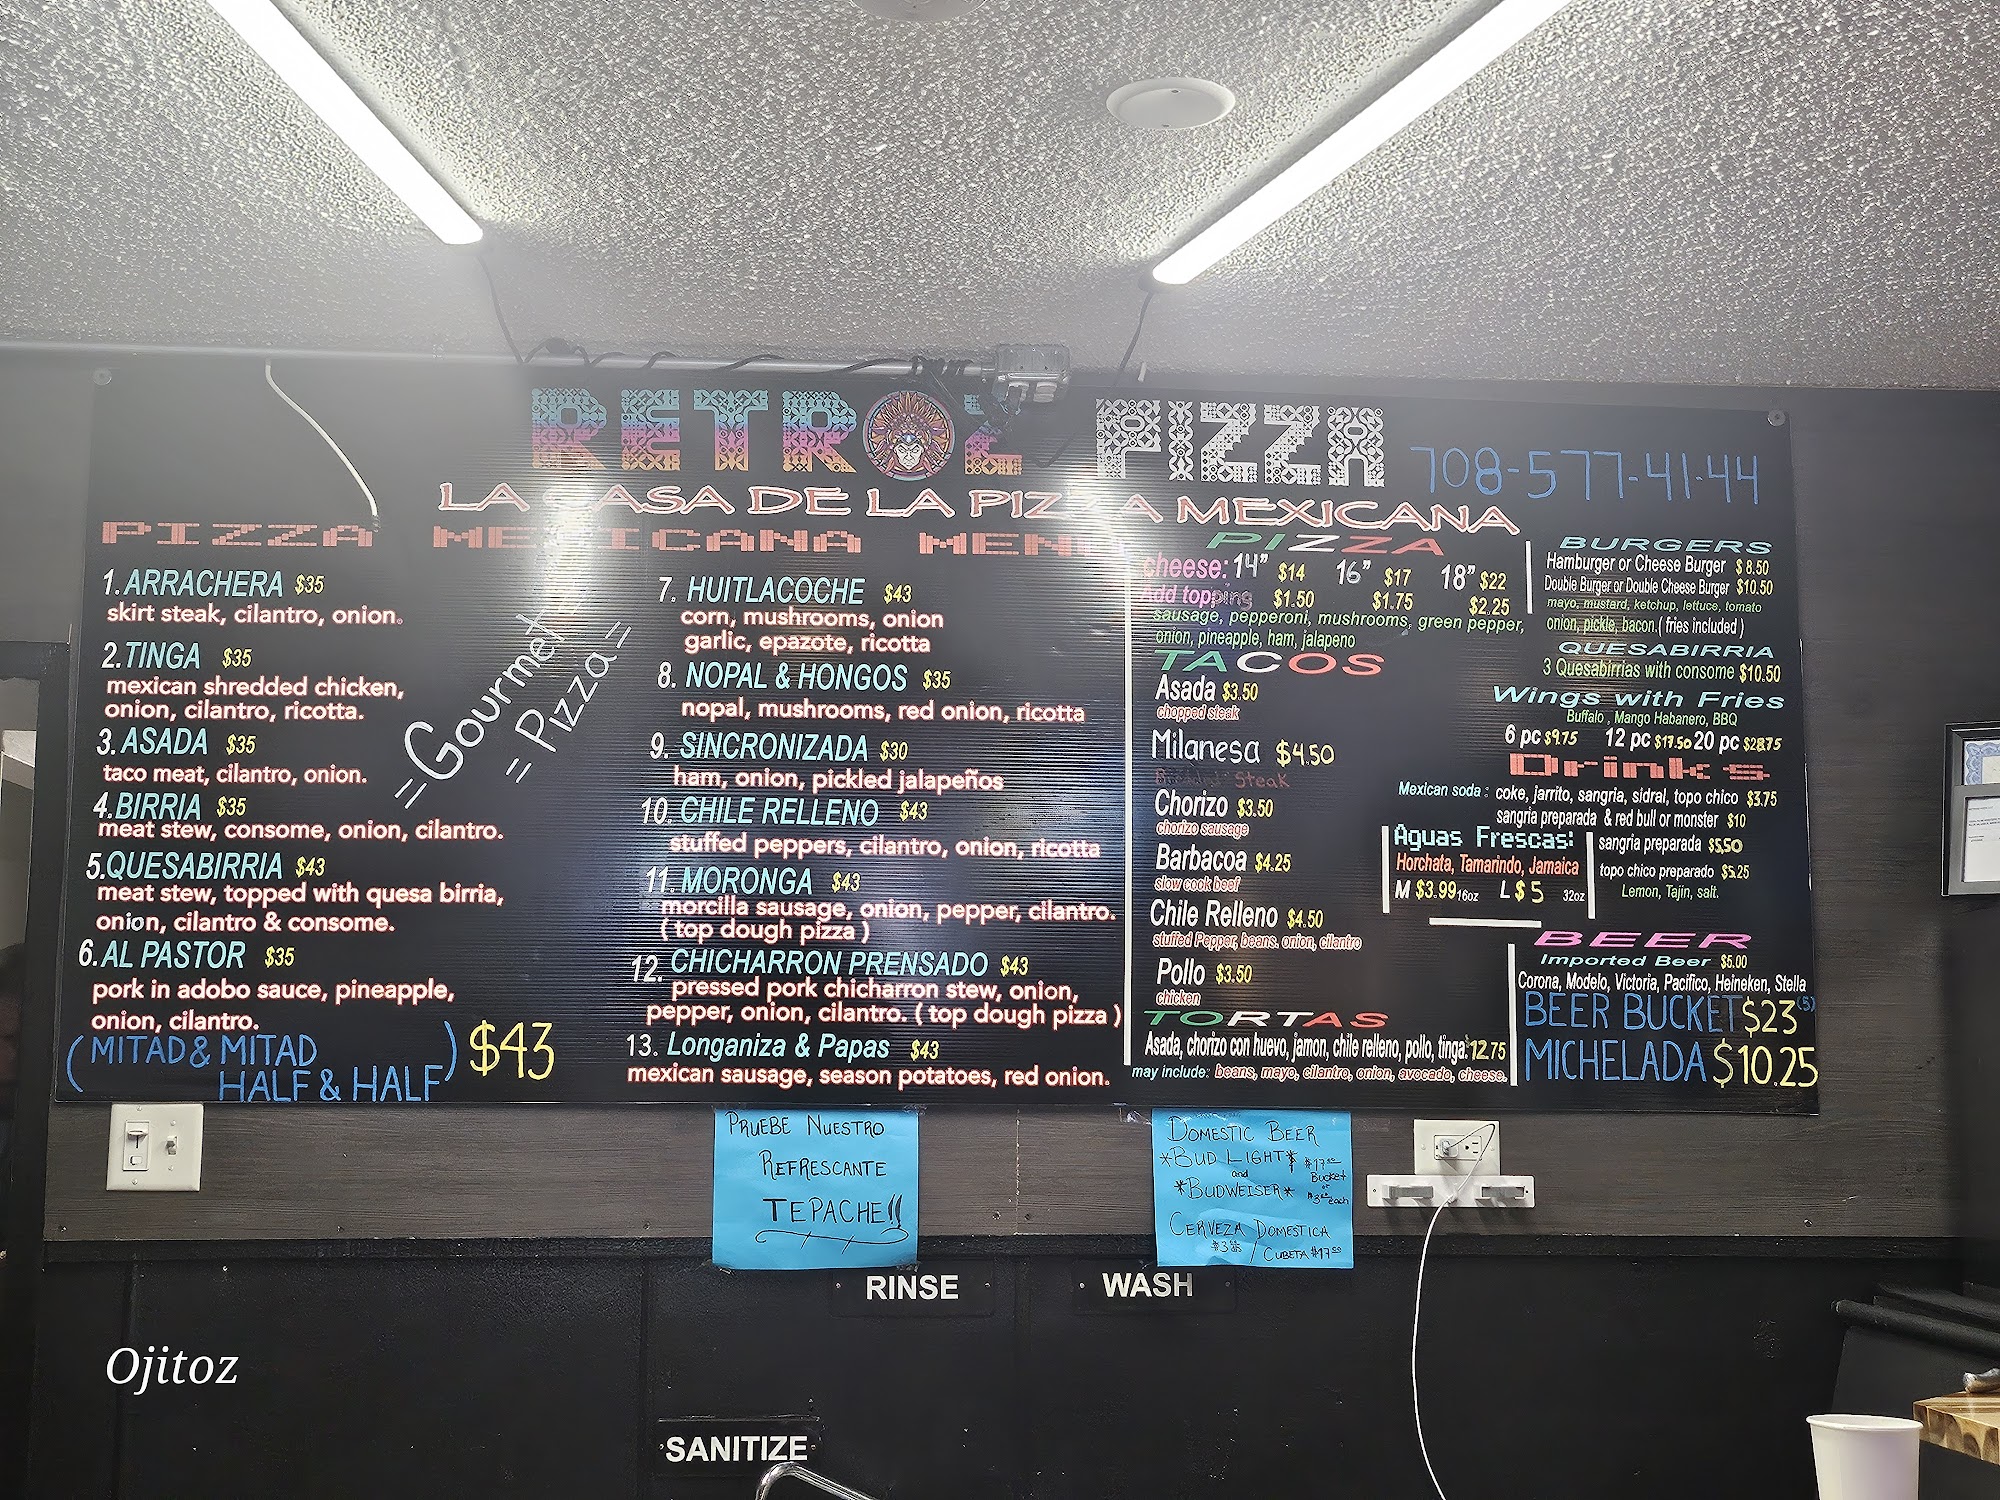 RETROZ PIZZA
708-577-41-44
LA CASA DE LA PIZZA MEXICANA
PIZZA MEXICANA MENU
1. ARRACHERA $35
skirt steak, cilantro, onion.
2. TINGA $35
mexican shredded chicken,
onion, cilantro, ricotta.
3. ASADA $35
taco meat, cilantro, onion.
4. BIRRIA $35
meat stew, consome, onion, cilantro.
5. QUESABIRRIA $43
meat stew, topped with quesa birria,
onion, cilantro & consome.
6. AL PASTOR $35
pork in adobo sauce, pineapple,
onion, cilantro.
(MITAD & MITAD
HALF & HALF) $43
=Gourmet=
=Pizza=
7. HUITLACOCHE $43
corn, mushrooms, onion
garlic, epazote, ricotta
8. NOPAL & HONGOS $35
nopal, mushrooms, red onion, ricotta
9. SINCRONIZADA $30
ham, onion, pickled jalapeños
10. CHILE RELLENO $43
stuffed peppers, cilantro, onion, ricotta
11. MORONGA $43
morcilla sausage, onion, pepper, cilantro.
( top dough pizza )
12. CHICHARRON PRENSADO $43
pressed pork chicharron stew, onion,
pepper, onion, cilantro. ( top dough pizza )
13. Longaniza & Papas $43
mexican sausage, season potatoes, red onion.
PIZZA
cheese: 14" $14 16" $17 18" $22
Add topping $1.50 $1.75 $2.25
sausage, pepperoni, mushrooms, green pepper,
onion, pineapple, ham, jalapeno
TACOS
Asada $3.50
chopped steak
Milanesa $4.50
Steak
Chorizo $3.50
chorizo sausage
Barbacoa $4.25
slow cook beef
Chile Relleno $4.50
stuffed Pepper, beans. onion, cilantro
Pollo $3.50
chicken
TORTAS
Asada, chorizo con huevo, jamon, chile relleno, pollo, tinga: $12.75
may include: beans, mayo, cilantro, onion, avocado, cheese.
BURGERS
Hamburger or Cheese Burger $8.50
Double Burger or Double Cheese Burger $10.50
mayo, mustard, ketchup, lettuce, tomato
onion, pickle, bacon. ( fries included )
QUESABIRRIA
3 Quesabirrias with consome $10.50
Wings with Fries
Buffalo , Mango Habanero, BBQ
6 pc $9.75 12 pc $17.50 20 pc $28.75
Drinks
Mexican soda : coke, jarrito, sangria, sidral, topo chico $3.75
sangria preparada & red bull or monster $10
Aguas Frescas:
Horchata, Tamarindo, Jamaica
M $3.99 16oz L $5 32oz
sangria preparada $5.50
topo chico preparado $5.25
Lemon, Tajin, salt.
BEER
Imported Beer $5.00
Corona, Modelo, Victoria, Pacifico, Heineken, Stella
BEER BUCKET $23 (5)
MICHELADA $10.25
PRUEBE NUESTRO
REFRESCANTE
TEPACHE!!
DOMESTIC BEER
*BUD LIGHT*
and
*BUDWEISER*
$17.00
Bucket
or
each
CERVEZA DOMESTICA
/ CUBETA $17.00
RINSE
WASH
SANITIZE
Ojitoz